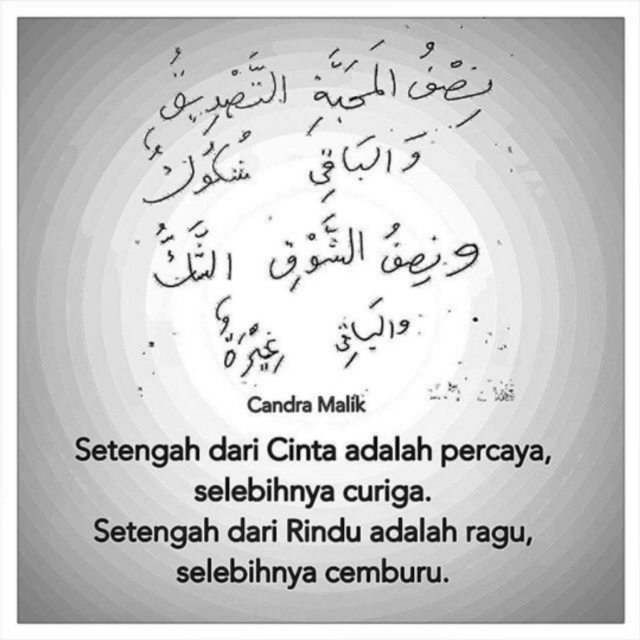 نِصْفُ المَحَبَّةِ التَّصْدِيقُ
وَالبَاقِي شُكُوكٌ
ونِصفُ الشَّوْقِ الشَّكُّ
والبَاقِي غَيْرَةٌ
Candra Malik
Setengah dari Cinta adalah percaya,
selebihnya curiga.
Setengah dari Rindu adalah ragu,
selebihnya cemburu.